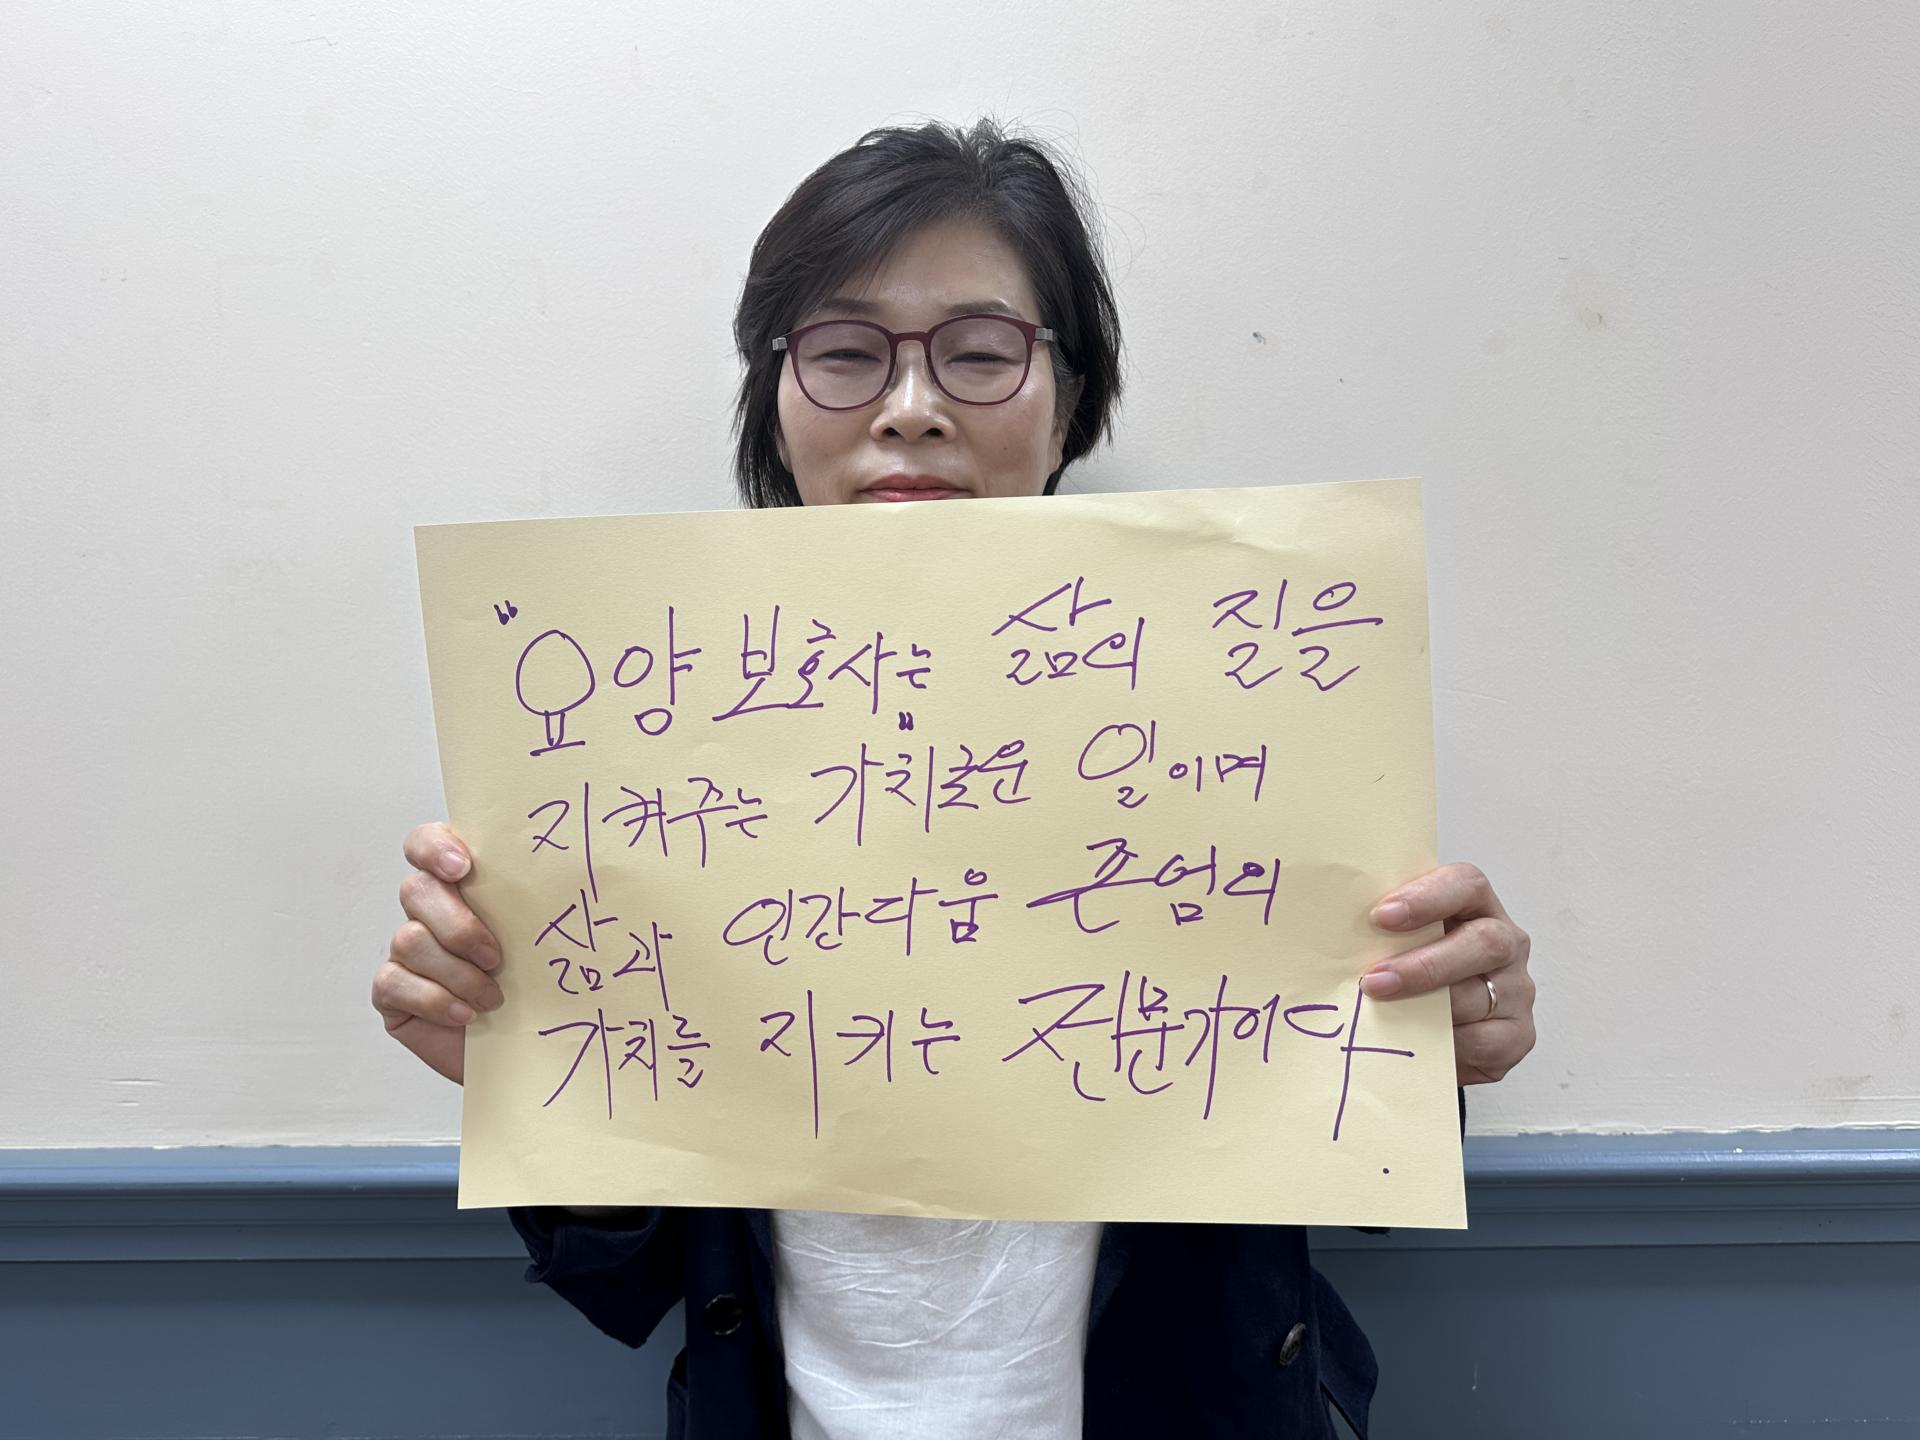 "요양 보호사는" 삶의 질을
지켜주는 가치로운 일이며
삶과 인간다움 존엄의
가치를 지키는 전문가이다.